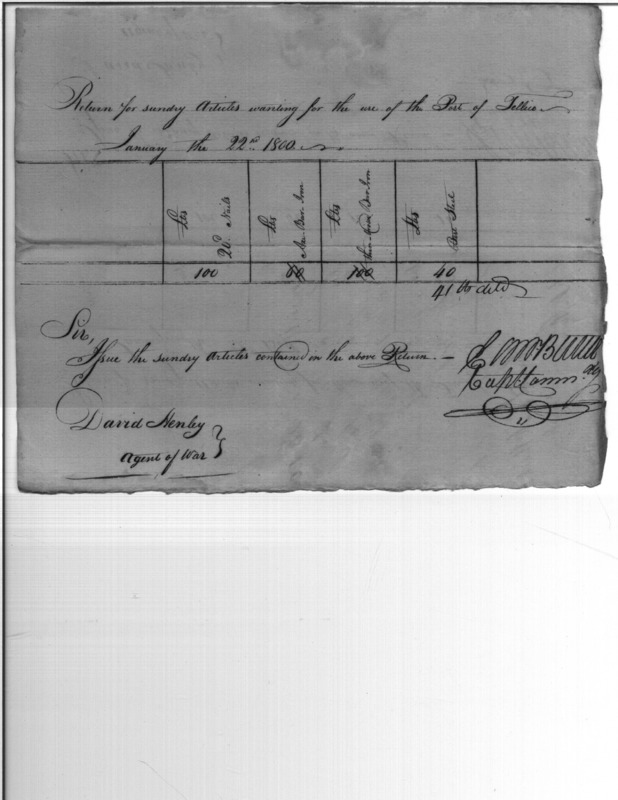 Return for sundry Articles wanting for the use of the Post of Tellico
January the 22nd 1800
lbs 20d Nails
lbs Bar Iron
lbs Bar Iron
lbs Steel
100 60 100 40
41 lb deld
Sir,
Issue the sundry Articles contained on the above Return. —
Capt Comm
David Henley
Agent of War